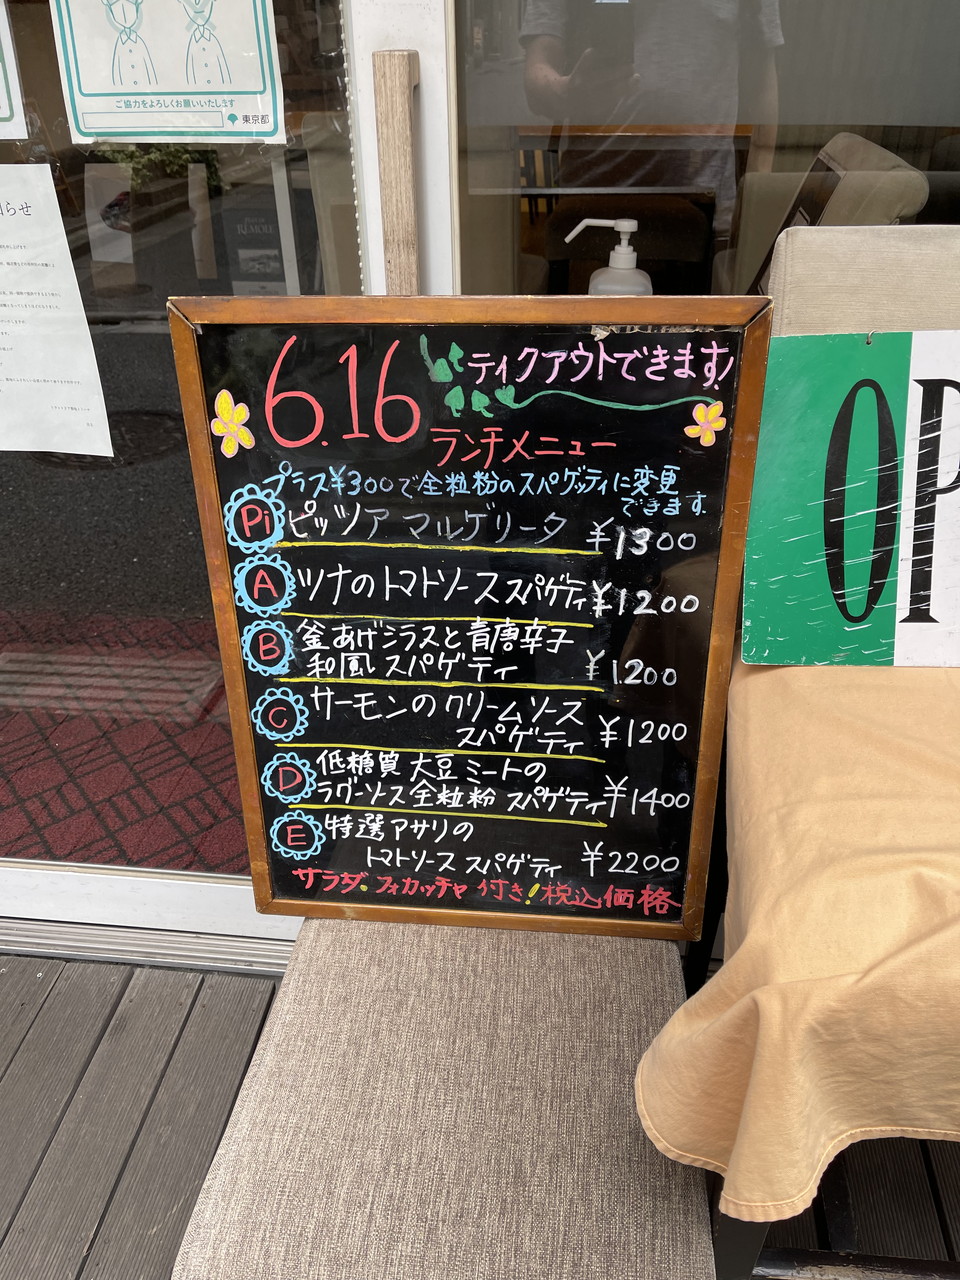 ご協力をよろしくお願いいたします
東京都
らせ
6.16
テイクアウトできます!
ランチメニュー
プラス¥300で全粒粉のスパゲッティに変更
できます.
Pi ピッツア マルゲリータ ¥1300
A ツナのトマトソーススパゲティ ¥1200
B 釜あげシラスと青唐辛子
和風スパゲティ ¥1200
C サーモンのクリームソース
スパゲティ ¥1200
D 低糖質 大豆ミートの
ラグーソース全粒粉 スパゲティ ¥1400
E 特選アサリの
トマトソース スパゲティ ¥2200
サラダ.フォカッチャ付き!税込価格
OP